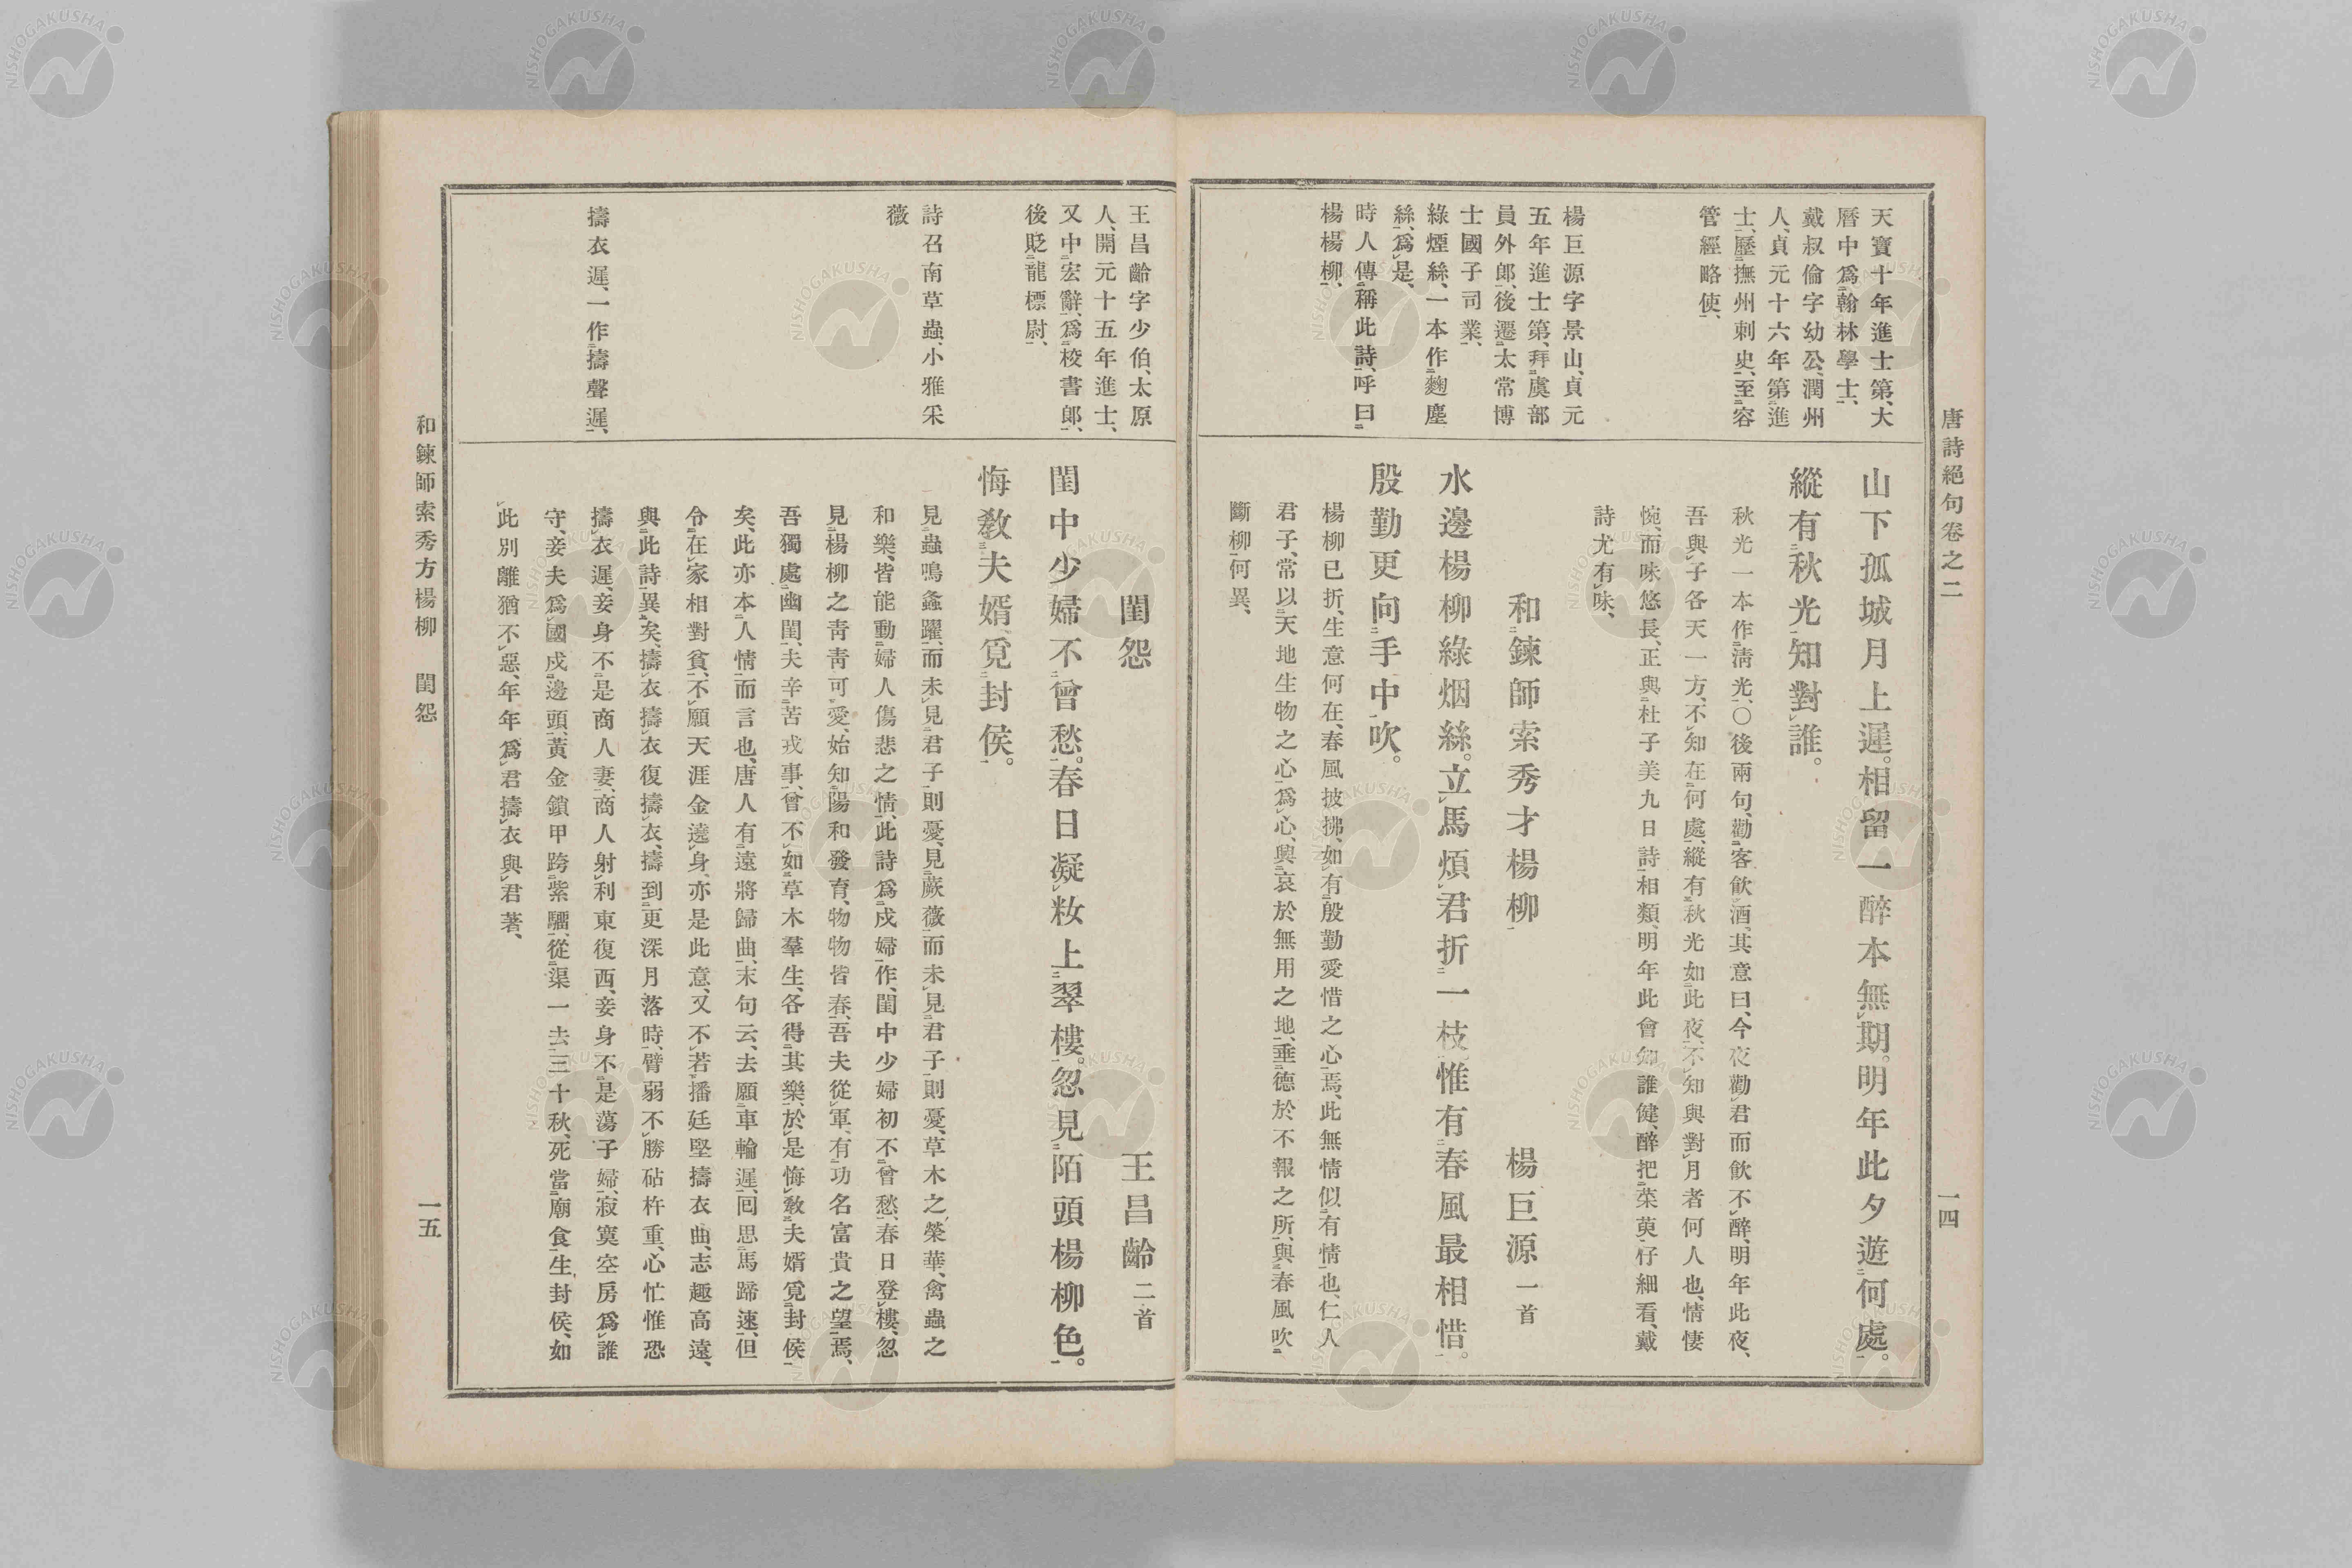 唐詩絕句卷之二
一四
天寶十年進士第、大
曆中爲翰林學士、
戴叔倫字幼公、潤州
人、貞元十六年第進
士、歷撫州刺史、至容
管經略使、
楊巨源字景山、貞元
五年進士第、拜虞部
員外郎、後遷太常博
士國子司業、
綠煙絲、一本作麴塵
絲、爲是、
時人傳稱此詩、呼曰
楊楊柳、
山下孤城月上遲。相留一醉本無期。明年此夕遊何處。
縱有秋光知對誰。
秋光一本作淸光、〇後兩句、勸客飮酒、其意曰、今夜勸君而飮不醉、明年此夜、
吾與子各天一方、不知在何處、縱有秋光如此夜、不知與對月者何人也、情悽
惋、而味悠長、正與杜子美九日詩相類、明年此會知誰健、醉把茱萸仔細看、戴
詩尤有味、
和鍊師索秀才楊柳 楊巨源 一首
水邊楊柳綠烟絲。立馬煩君折一枝。惟有春風最相惜。
殷勤更向手中吹。
楊柳已折、生意何在、春風披拂、如有殷勤愛惜之心焉、此無情似有情也、仁人
君子、常以天地生物之心爲心、興哀於無用之地、垂德於不報之所、與春風吹
斷柳何異、
王昌齡字少伯、太原
人、開元十五年進士、
又中宏辭、爲校書郎、
後貶龍標尉、
詩召南草蟲、小雅采
薇
擣衣遲、一作擣聲遲、
閨怨 王昌齡 二首
閨中少婦不曾愁。春日凝粧上翠樓。忽見陌頭楊柳色。
悔敎夫婿覓封侯。
見蟲鳴螽躍、而未見君子則憂、見蕨薇而未見君子則憂、草木之榮華、禽蟲之
和樂、皆能動婦人傷悲之情、此詩爲戍婦作、閨中少婦初不曾愁、春日登樓、忽
見楊柳之靑靑可愛、始知陽和發育、物物皆春、吾夫從軍、有功名富貴之望焉、
吾獨處幽閨、夫辛苦戎事、曾不如草木羣生、各得其樂、於是悔敎夫婿覓封侯
矣、此亦本人情而言也、唐人有遠將歸曲、末句云、去願車輪遲、囘思馬蹄速、但
令在家相對貧、不願天涯金遶身、亦是此意、又不若播廷堅擣衣曲、志趣高遠、
與此詩異矣、擣衣擣衣復擣衣、擣到更深月落時、臂弱不勝砧杵重、心忙惟恐
擣衣遲、妾身不是商人妻、商人射利東復西、妾身不是蕩子婦、寂寞空房爲誰
守、妾夫爲國戍邊頭、黃金鎖甲跨紫騮、從渠一去三十秋、死當廟食生封侯、如
此別離猶不惡、年年爲君擣衣與君著、
和鍊師索秀方楊柳 閨怨
一五